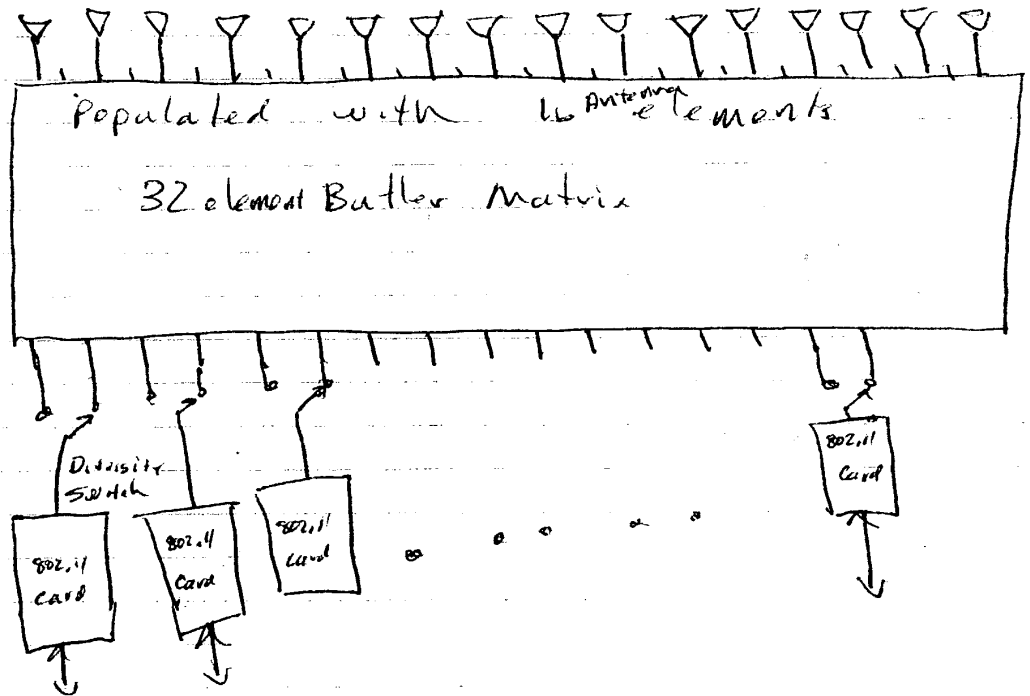 Populated with 16 Antenna elements
32 element Butler Matrix
Diversity
Switch
802.11
Card
802.11
Card
802.11
Card
802.11
Card